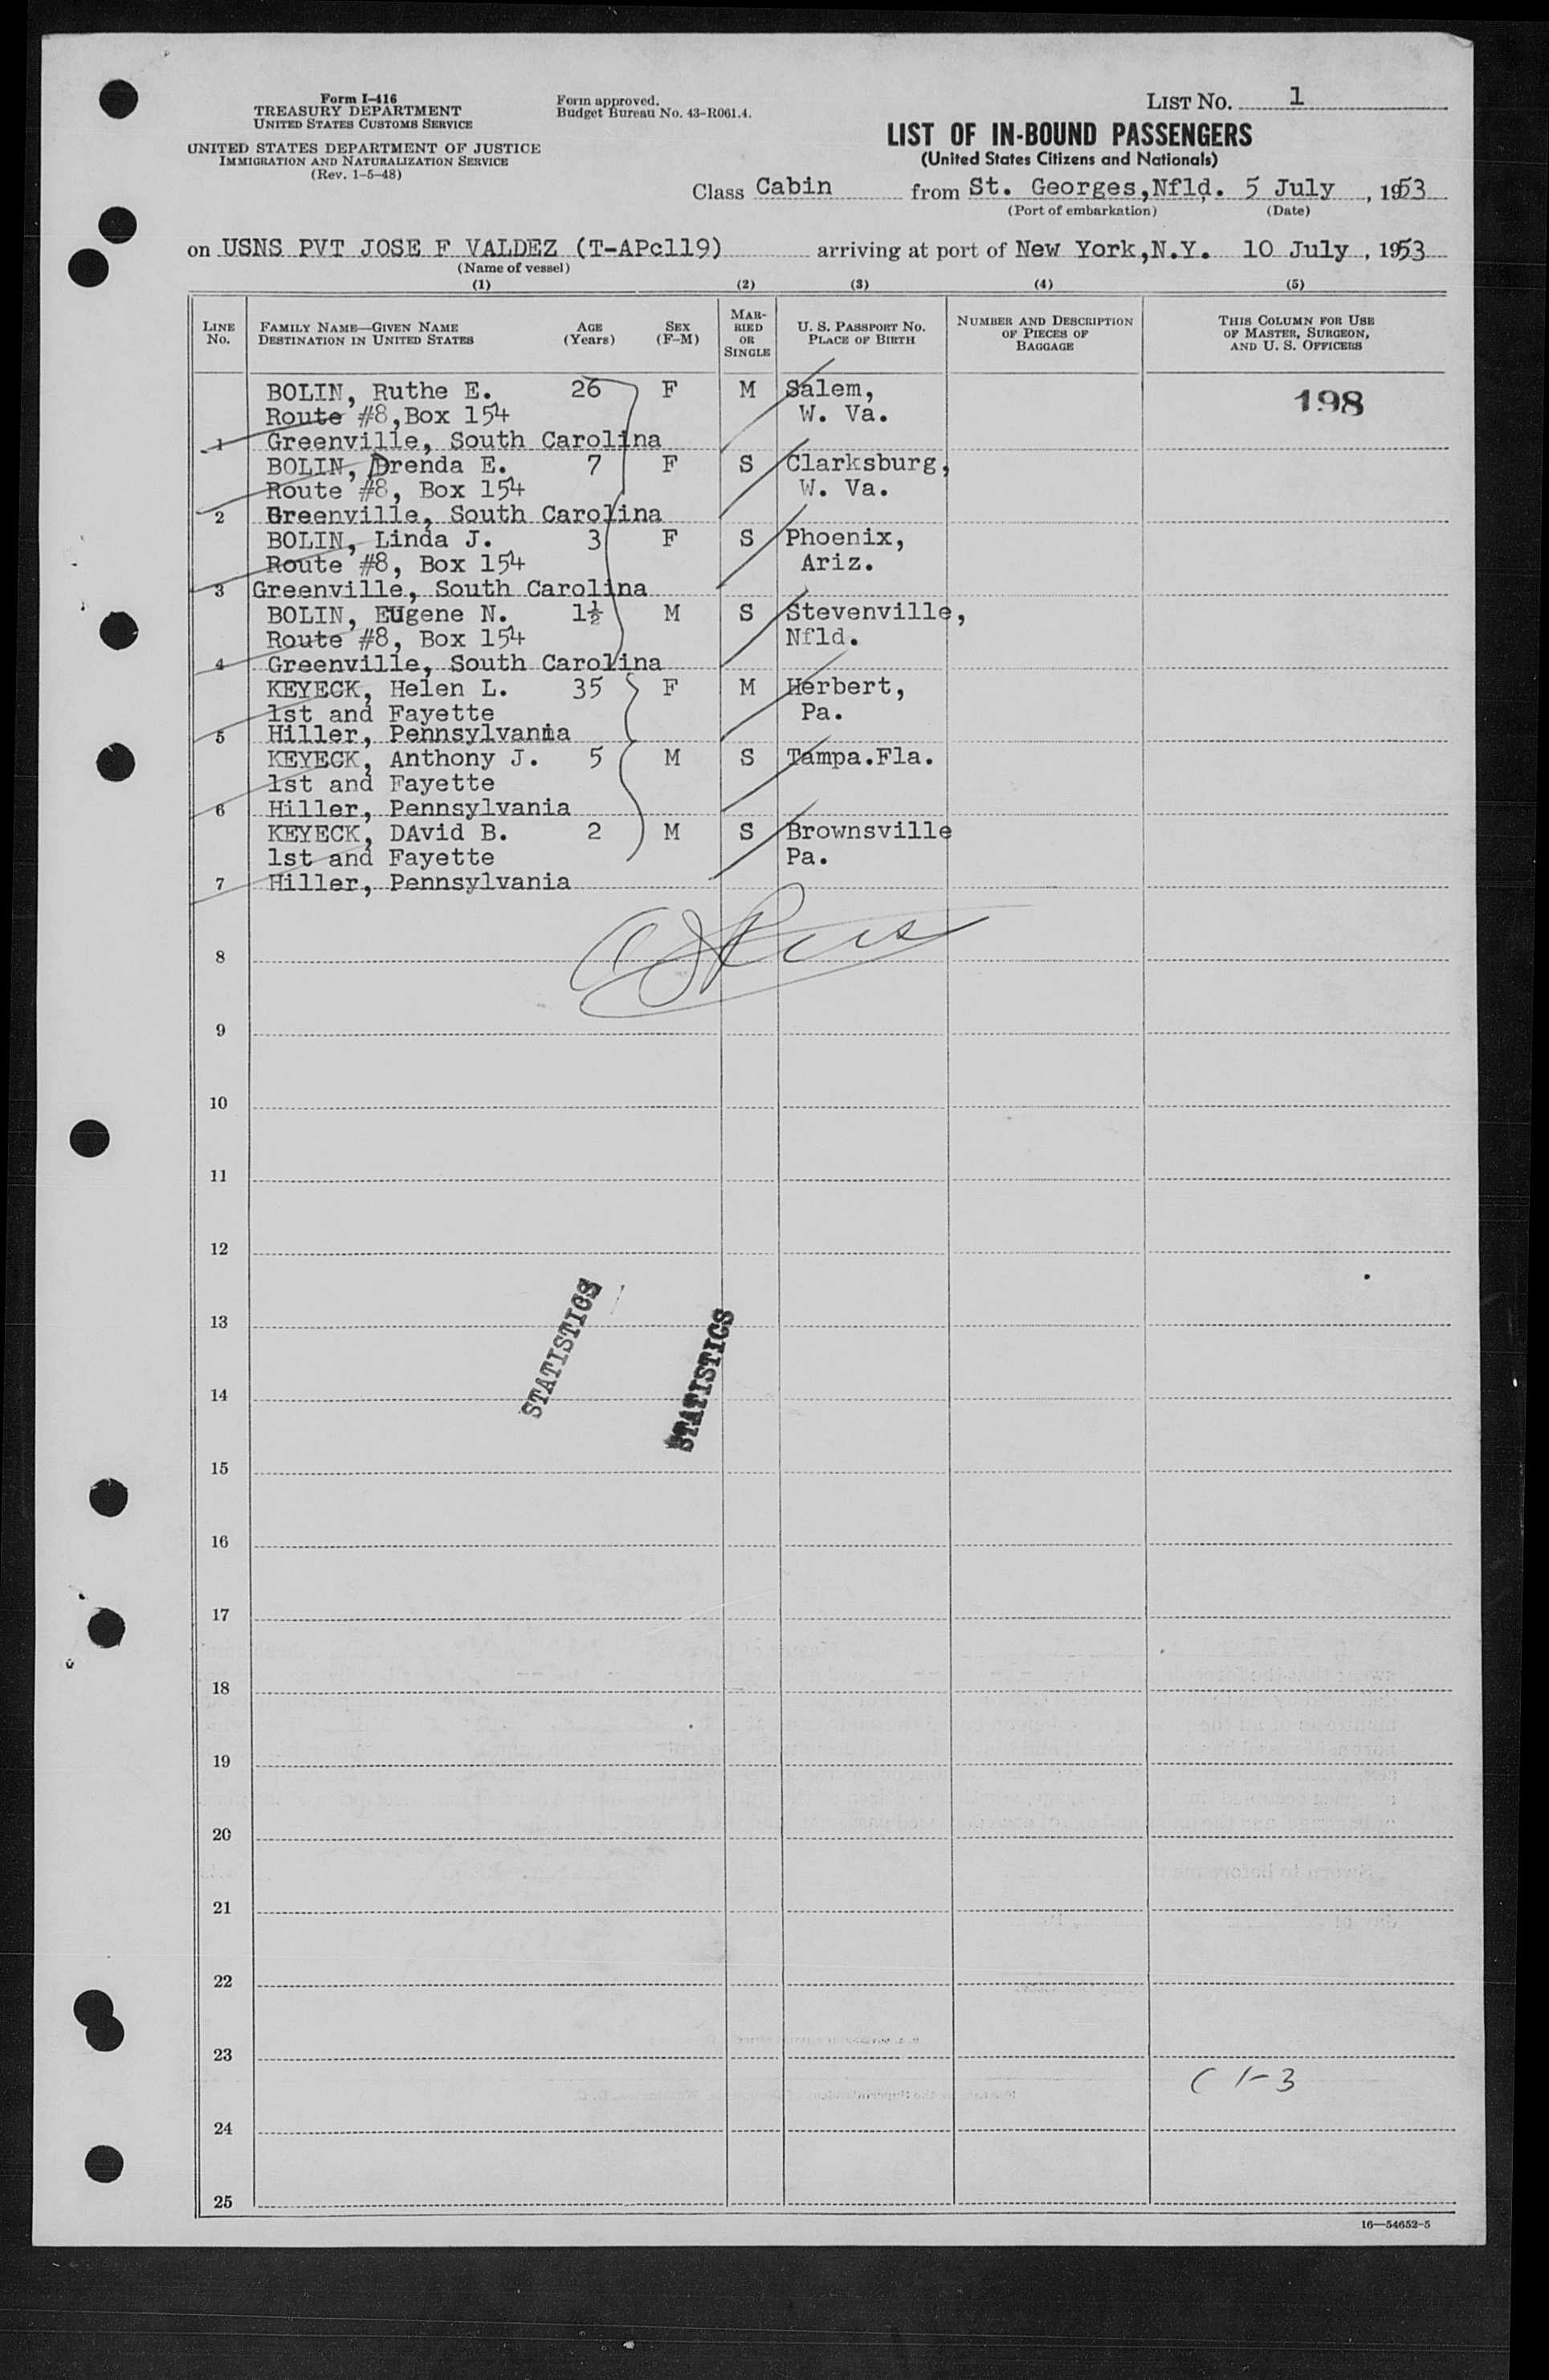 Form I-416
TREASURY DEPARTMENT
UNITED STATES CUSTOMS SERVICE
UNITED STATES DEPARTMENT OF JUSTICE
IMMIGRATION AND NATURALIZATION SERVICE
(Rev. 1-5-48)
Form approved.
Budget Bureau No. 43-R061.4.
LIST No. 1
LIST OF IN-BOUND PASSENGERS
(United States Citizens and Nationals)
Class Cabin from St. Georges,Nfld. 5 July, 1953
(Port of embarkation) (Date)
on USNS PVT JOSE F VALDEZ (T-APc119) arriving at port of New York,N.Y. 10 July, 1953
(Name of vessel)
(1) (2) (3) (4) (5)
LINE No. FAMILY NAME—GIVEN NAME DESTINATION IN UNITED STATES AGE (Years) SEX (F-M) MARRIED OR SINGLE U. S. PASSPORT NO. PLACE OF BIRTH NUMBER AND DESCRIPTION OF PIECES OF BAGGAGE THIS COLUMN FOR USE OF MASTER, SURGEON, AND U. S. OFFICERS
BOLIN, Ruthe E. 26 F M Salem, 198
Route #8,Box 154 W. Va.
1 Greenville, South Carolina
BOLIN, Brenda E. 7 F S Clarksburg,
Route #8, Box 154 W. Va.
2 Greenville, South Carolina
BOLIN, Linda J. 3 F S Phoenix,
Route #8, Box 154 Ariz.
3 Greenville, South Carolina
BOLIN, EUgene N. 1½ M S Stevenville,
Route #8, Box 154 Nfld.
4 Greenville, South Carolina
KEYECK, Helen L. 35 F M Herbert,
1st and Fayette Pa.
5 Hiller, Pennsylvania
KEYECK, Anthony J. 5 M S Tampa.Fla.
1st and Fayette
6 Hiller, Pennsylvania
KEYECK, DAvid B. 2 M S Brownsville
1st and Fayette Pa.
7 Hiller, Pennsylvania
8
9
10
11
12
13
STATISTICS STATISTICS
14
15
16
17
18
19
20
21
22
23
C 1-3
24
25
16—54652-5